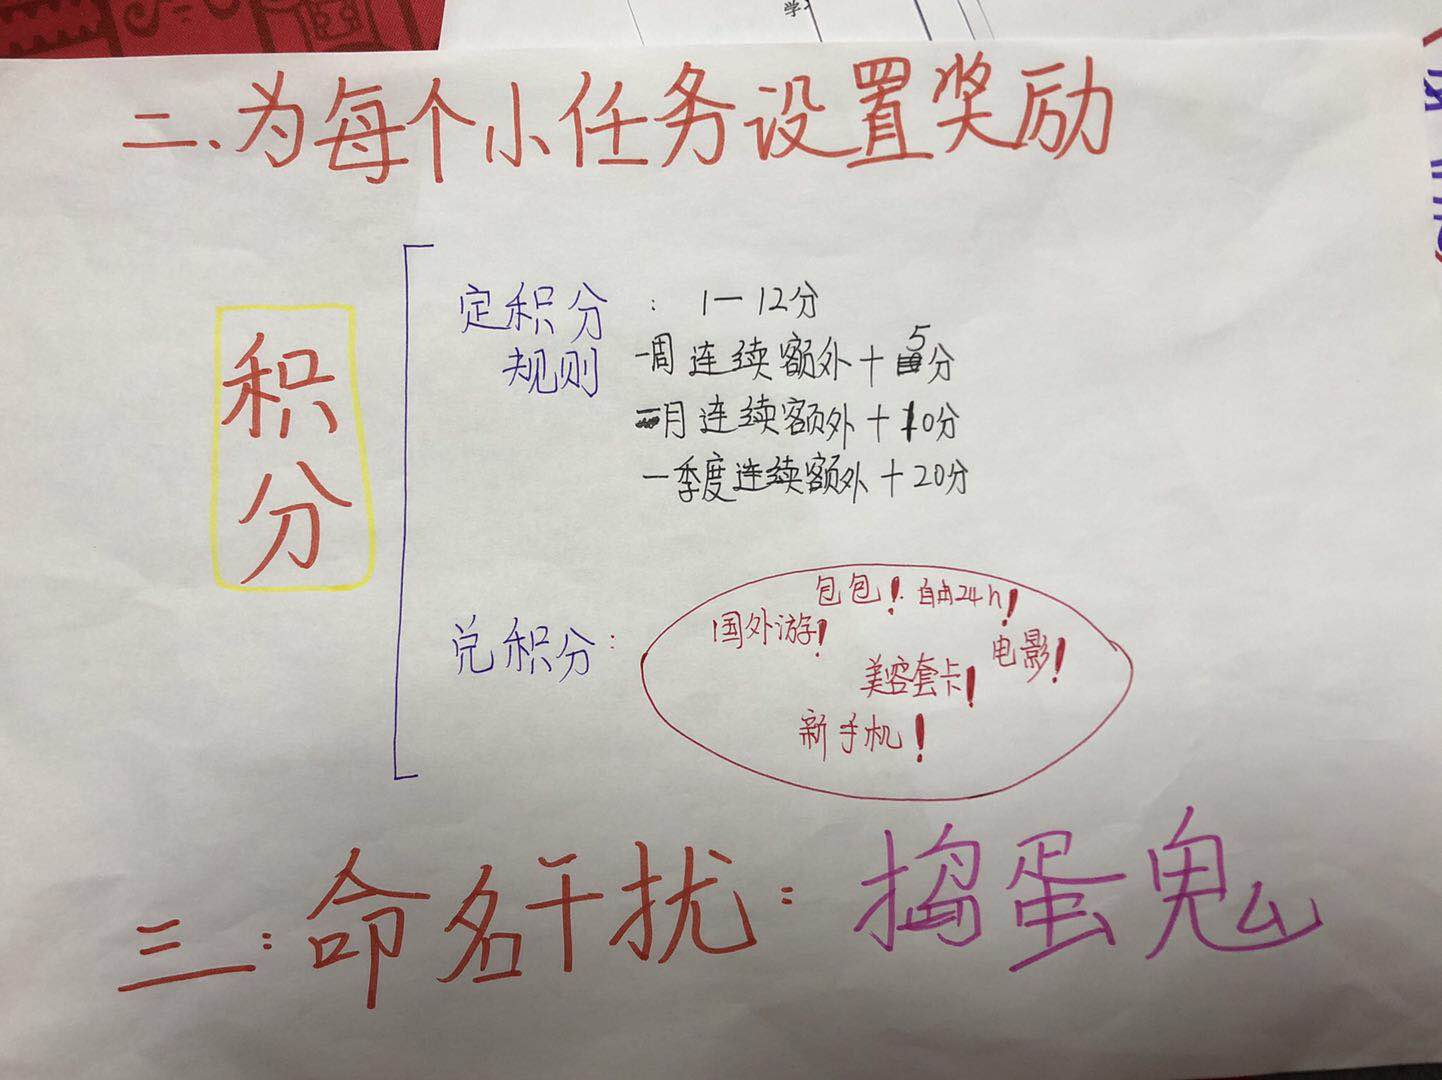 学
二.为每个小任务设置奖励
积分
定积分规则
: 1—12分
一周连续额外+5分
一月连续额外+10分
一季度连续额外+20分
兑积分:
包包! 自由24h!
国外游!
电影!
美容套卡!
新手机!
三:命名干扰:捣蛋鬼